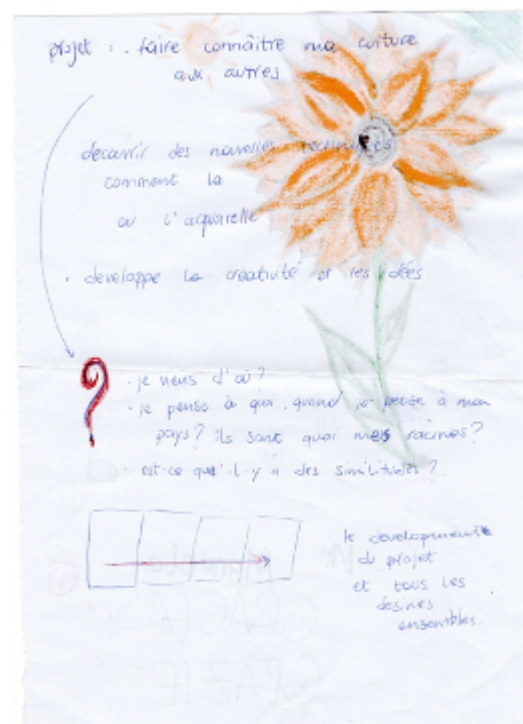 projet : . faire connaître ma culture
aux autres
· découvrir des nouvelles techniques
comment la
ou l'aquarelle
· developpe la creativité et les idées
?
· je viens d'où?
· je pense à quoi, quand je pense à mon
pays? Ils sont quoi mes racines?
· est-ce qu'il y a des similitudes?
le developpement
du projet
et tous les
desines
ensembles
GRAZIE